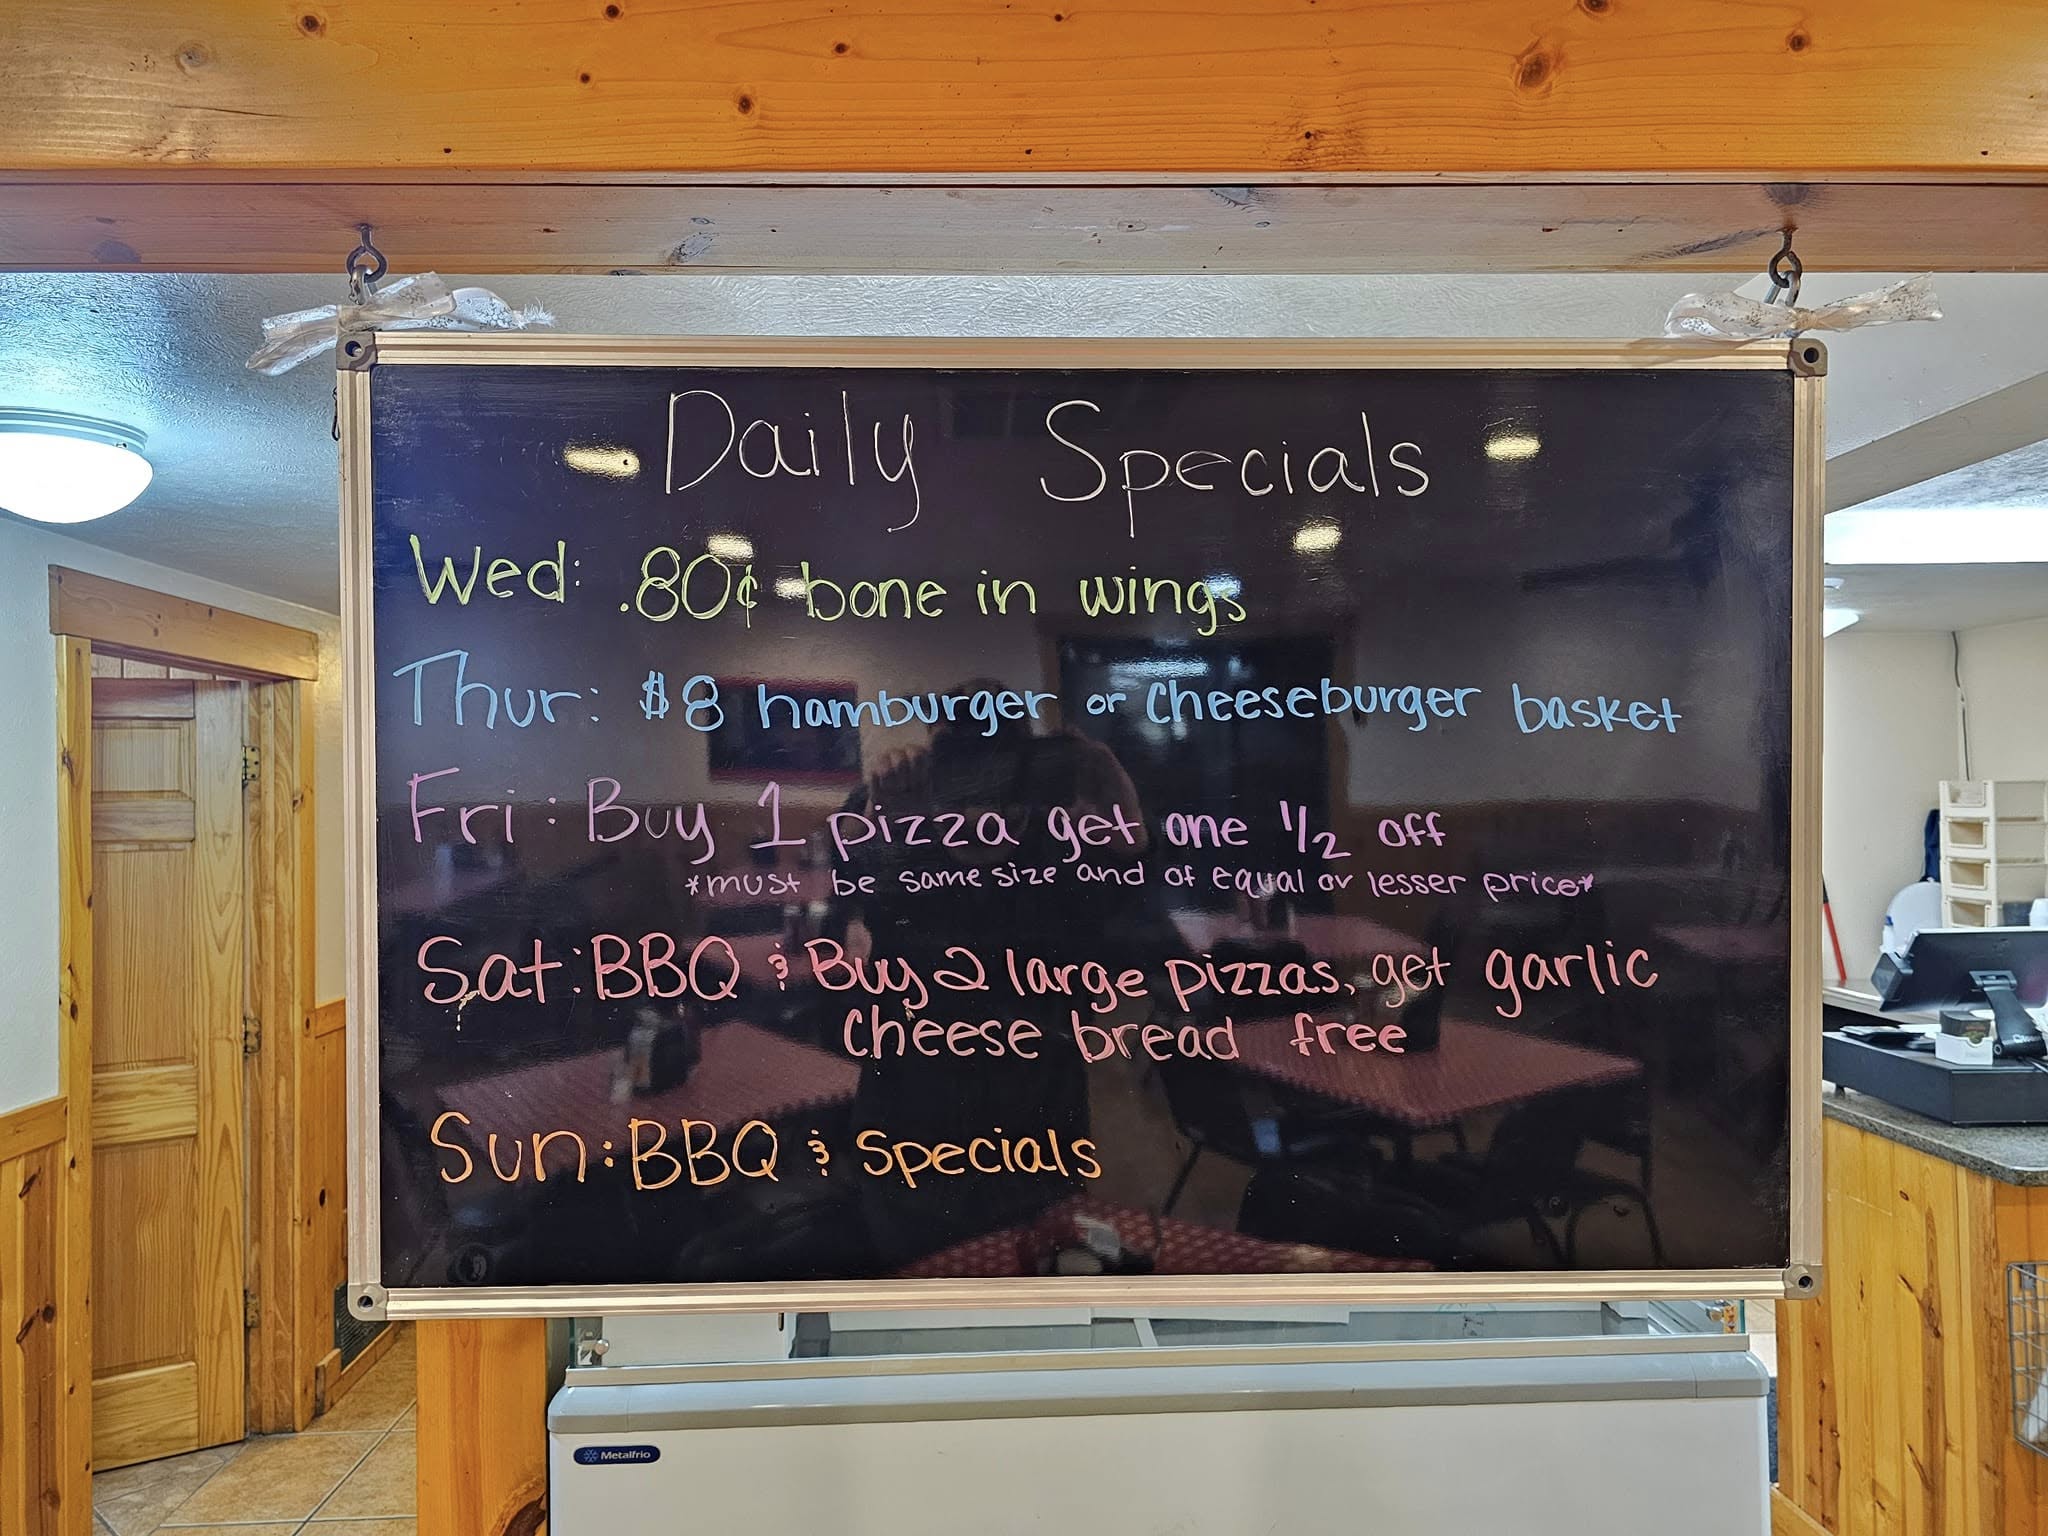 Daily Specials
Wed: .80¢ bone in wings
Thur: $8 hamburger or Cheeseburger basket
Fri: Buy 1 pizza get one 1/2 off
*must be same size and of equal or lesser price*
Sat: BBQ & Buy 2 large pizzas, get garlic
Cheese bread free
Sun: BBQ & Specials
Metalfrio